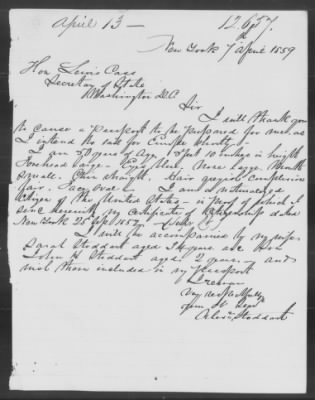 April 13 — 12.657.
New York 7th April 1859
Hon Lewis Cass
Secretary of State
Washington D.C.
Sir
I will thank you
to cause a Passport to be prepared for me, as
I intend to sail for Europe shortly.
I am 50 years of Age. 5 feet 10 inches in height
Forehead large. Eyes blue. Nose large. Mouth
square. Chin straight. Hair grayish Complexion
fair. Face oval. I am a naturalized
Citizen of the United States — in proof of which I
send herewith my Certificate of Citizenship dated
New York
I will be accompanied by my wife
Sarah Stoddart aged years and Son
John H Stoddart aged 2 years — and
wish them included in my Passport
I remain
Very respectfully
Your ob Serv
Alexr. Stoddart